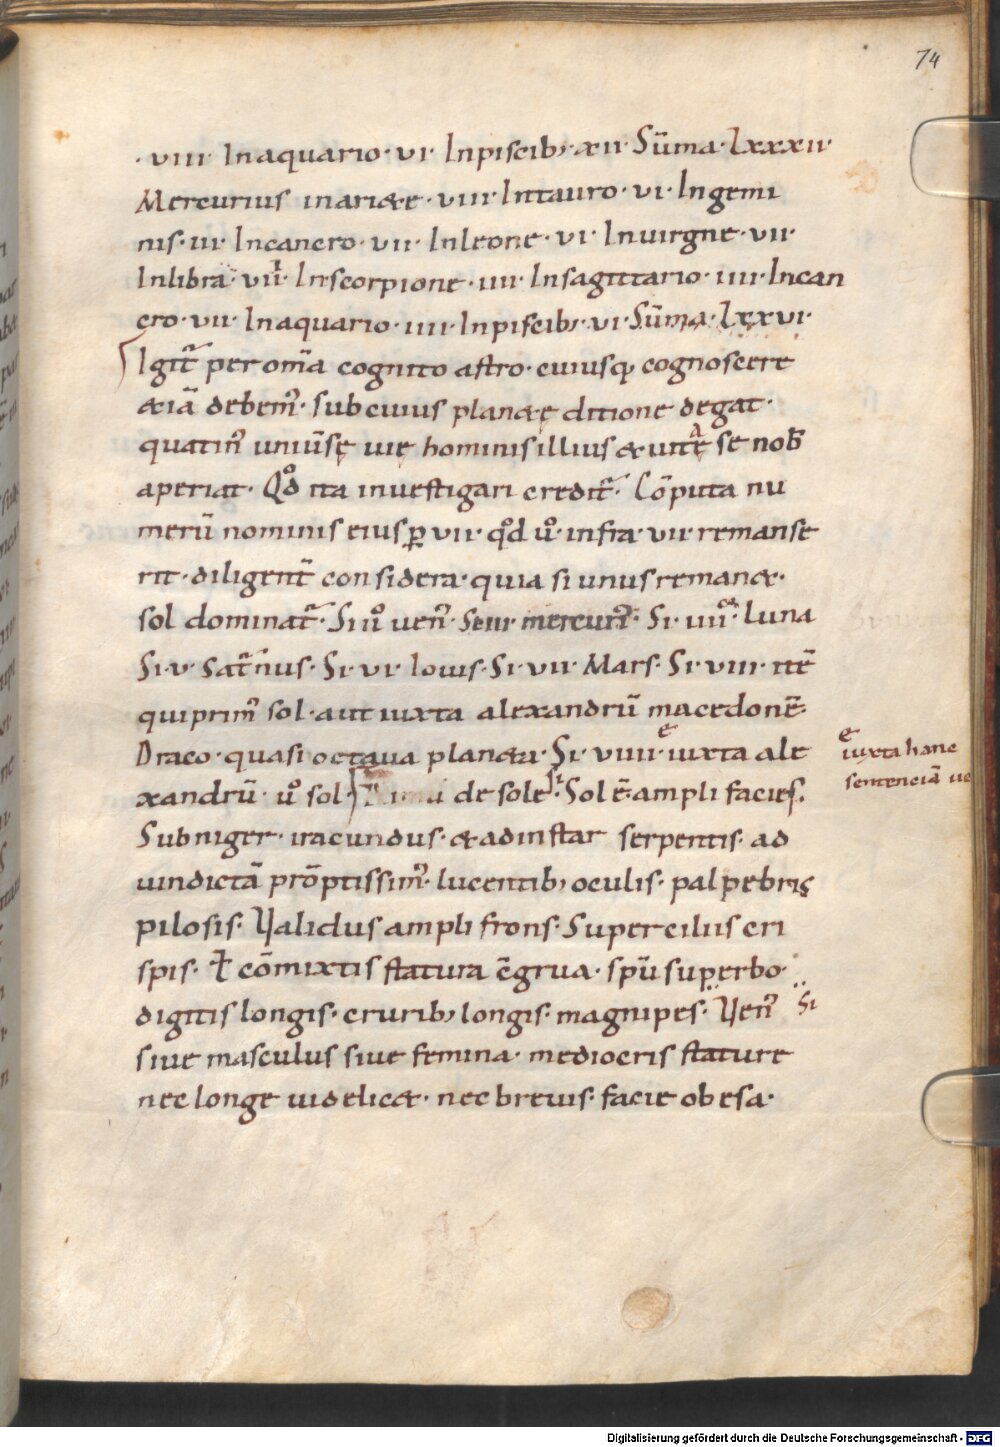 74
· viii · Inaquario · vi · Inpiscib; · xii · Sūma · Lxxxii ·
Mercurius inariete · viii · Intauro · vi · Ingemi
nis · iii · Incancro · vii · Inleone · vi · Inuirgne · vii ·
Inlibra · vii · Inscorpione · iiii · Insagittario · iiii · Incan
cro · vii · Inaquario · iiii · Inpiscib; · vi · Sūma · Lxxvi ·
Igit᷑ per om̄a cognito astro · cuiusq; cognoscere
&iā debem᾽ · sub cuius plan&ę ditione degat ·
quatin᾽ uniūsę uię hominis illius & uitę se nob̄
aperiat · Qd̊ ita inuestigari credit᷑ · Cōputa nu
merū nominis eius ꝑ vii · qd̊ ů · infra · vii · remanse
rit · diligent̄ considera · quia si unus reman& ·
sol dominat᷑ · Si ii ů uen᾽ · Se iii mercuri᾽ · Si · iiii · luna
Si · v · Sat᷑nus · Si · vi · Iouis · Si · vii · Mars · Si · viii · itē
qui prim᾽ sol · aut iuxta alexandrū macedonē ·
Draco · quasi octaua plan&a · Si · viiii · iuxta ale
ē iuxta hanc
sentenciā ue
xandrū · ů sol · de sole · Sol ē · ampli facies ·
Subniger · iracundus · & adinstar serpentis · ad
uindictā prōptissim᾽ · lucentib; oculis · palpebris
pilosis · Ualidus ampli frons · Superciliis cri
spis · ł cōmixtis statura c̄grua · spū superbo
digitis longis · crurib; longis · magni pes · Uen᾽ Si
siue masculus siue femina · mediocris stature
nec longe uidelic& · nec breuis · facie obesa ·
Digitalisierung gefördert durch die Deutsche Forschungsgemeinschaft - DFG